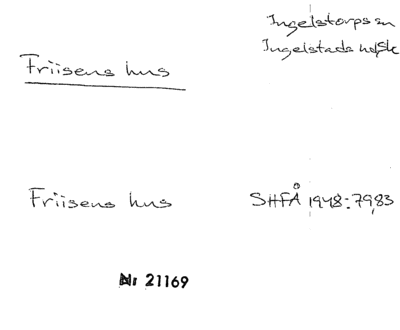 Ingelstorps sn
Ingelstads hd, Sk
Friisens hus
Friisens hus SHFÅ 1948: 79,83
Nr 21169